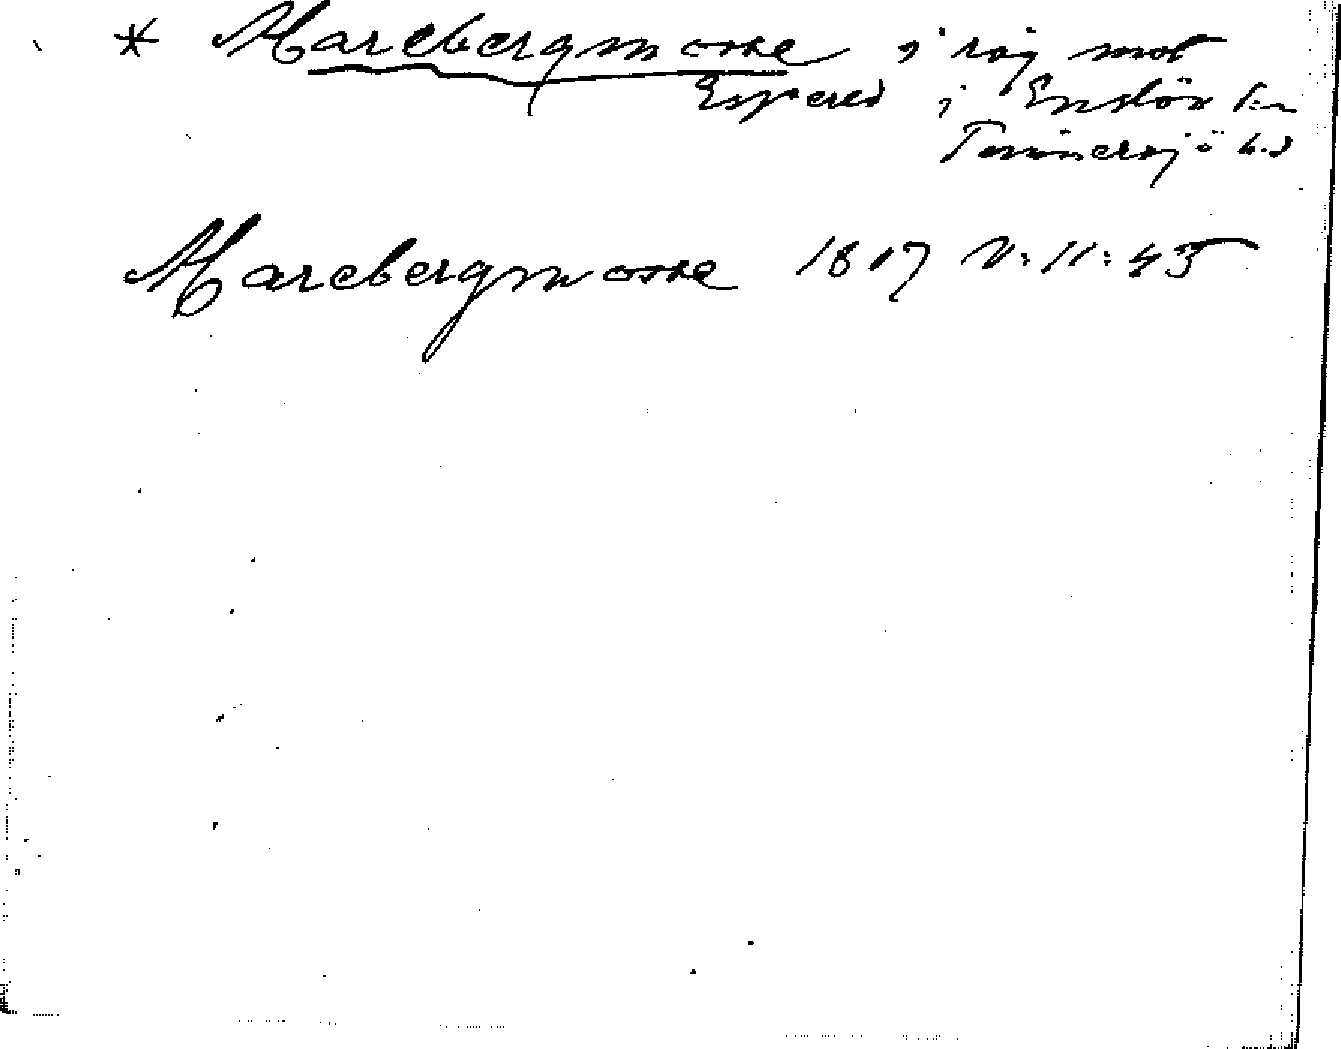 * Marebergmosse i råg mot
Espered i Enslöv sn
Tönnersjö hd
Marebergmosse 1817 N:11:45